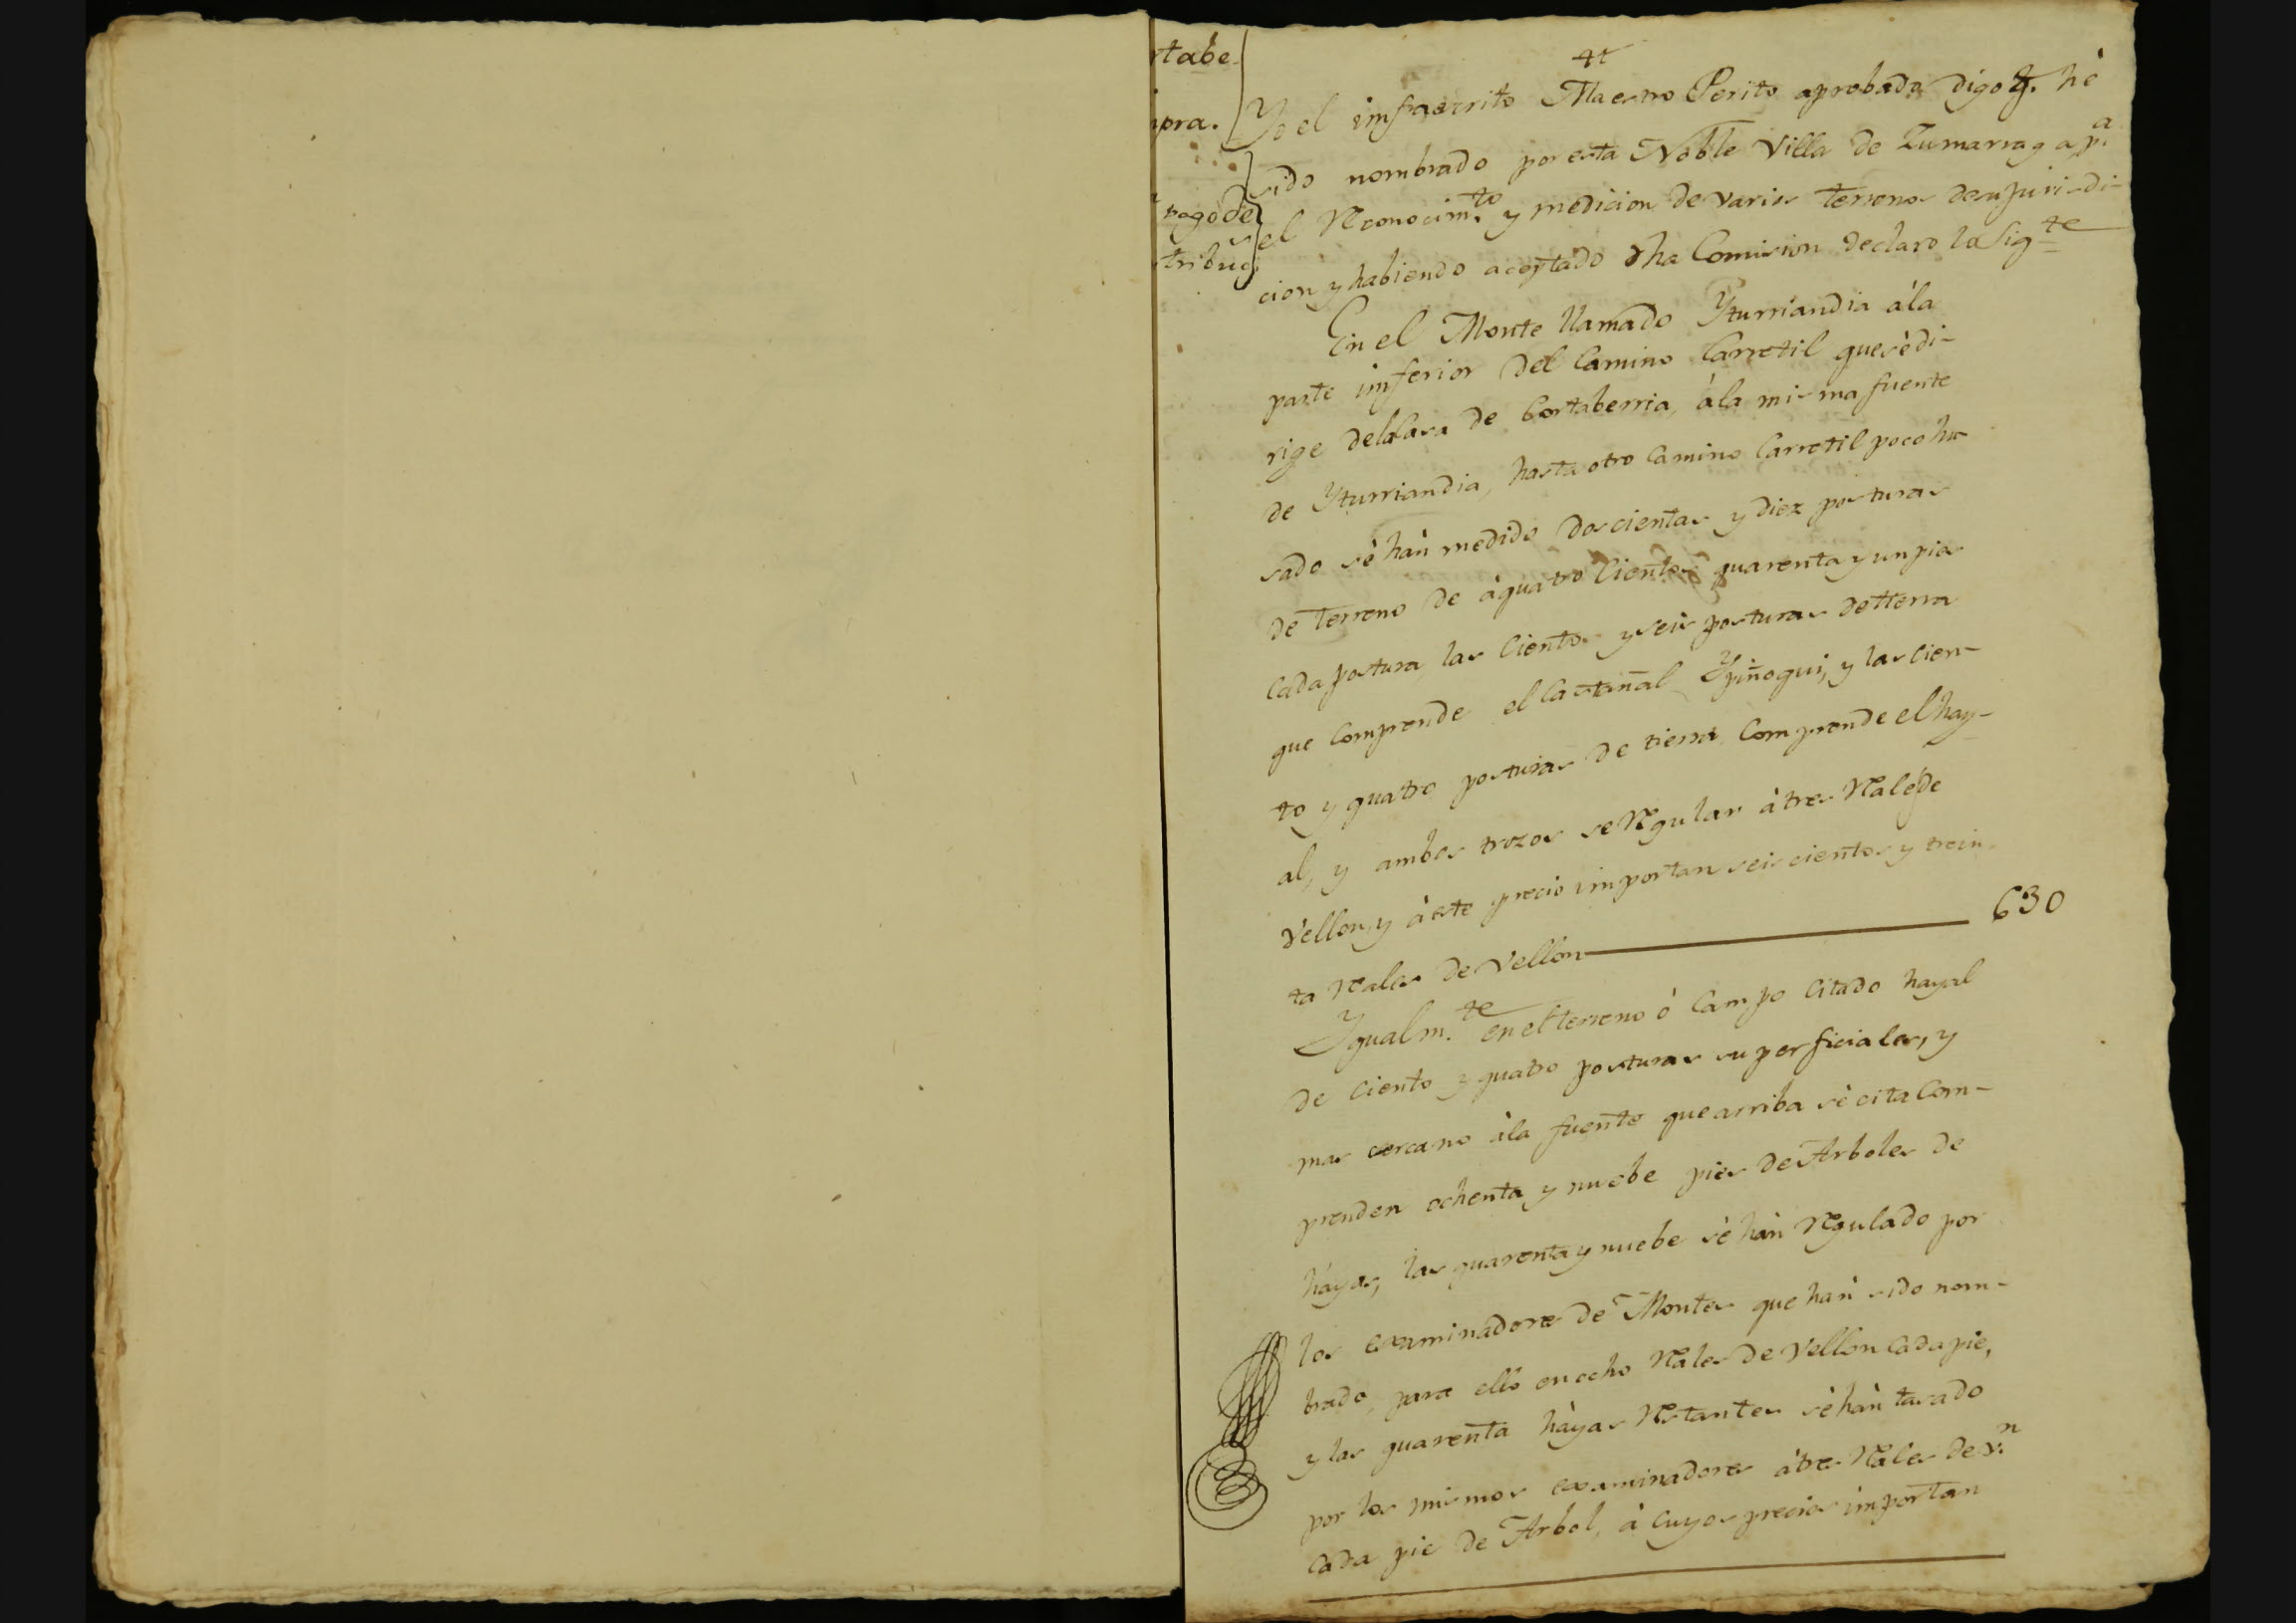 rtabe
ipra.
pago de
stribuci
Yo el imfraescrito Maestro Perito aprobado digo q. hè
sido nombrado por esta Noble Villa de Zumarraga, p.a
el Reconocim.to y medicion de varios terrenos de su jurisdi-
cion y habiendo aceptado dha Comision declaro lo Sig.te
En el Monte llamado Yturriandia à la
parte imferior del Camino Carretil que sè di-
rige de la Casa de Cortaberria, à la misma fuente
de Yturriandia, hasta otro Camino Carretil poco hu-
sado sè hàn medido doscientas y diez posturas
de terreno de à quatro Cientos quarenta y un pies
Cada postura, las Ciento y seis posturas de tterra
que Comprende el Castañal Ypiñogui, y las Cien-
to y quatro posturas de tierra Comprende el hay-
al, y ambos trozos se Regulan à tres Rales de
vellon, y à este precio importan seis cientos y trein-
ta Reales de Vellon 630
Ygualm.te en el terreno ò Campo Citado hayal
de Ciento y quatro posturas superficiales, y
mas cercano à la fuente que arriba sè cita Com-
prenden ochenta y nuebe pies de Arboles de
hàyas, las quarenta y nuebe sè hàn Regulado por
los examinadores de Montes que hàn sido nom-
brado, para ello en ocho Rales de Vellon Cada pie,
y las quarenta hàyas Restantes sè hàn tasado
por los mismos examinadores à tres Rales de v.n
Cada pie de Arbol, à Cuyos precios importan